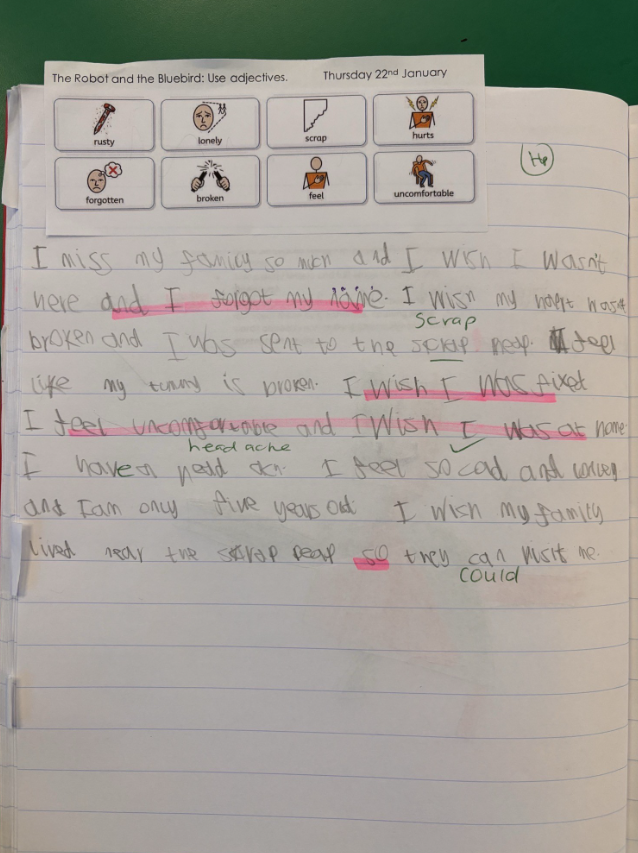 The Robot and the Bluebird: Use adjectives. Thursday 22nd January
rusty lonely scrap hurts
forgotten broken feel uncomfortable
He
I miss my family so mch and I wish I wasn't
here and I forgot my name. I wish my heart wasnt
scrap
broken and I was sent to the scrap heap. I feel
like my tummy is broken. I wish I was fixet
I feel uncomfortable and I Wish I was at home
head ache
I have a hedd I feel so cad and
and I am only five years old. I wish my family
lived near the scrap peap so they can visit me.
could